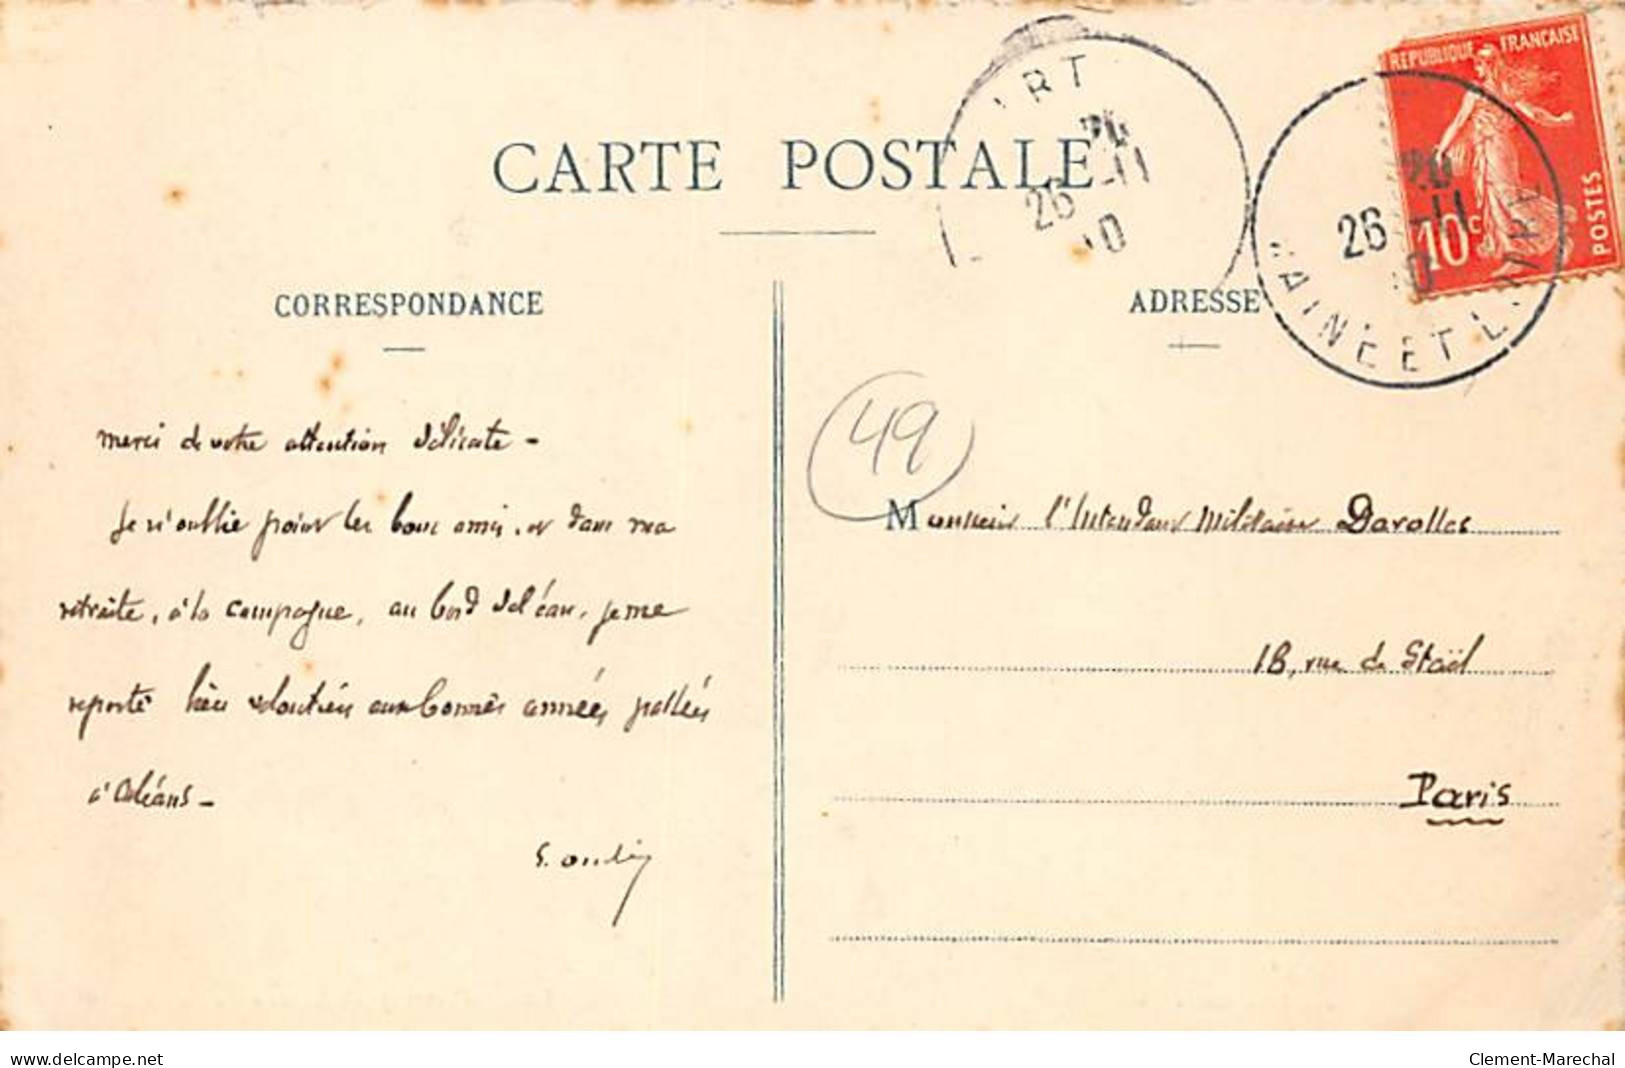 CARTE POSTALE
CORRESPONDANCE
merci de votre attention délicate -
Je n'oublie point les bons amis, et dans ma
retraite, à la campagne, au bord de l'eau, je me
reporte bien volontiers aux bonnes années passées
à Orléans -
ADRESSE
49
Monsieur l'Intendant Militaire Darolles
18, rue de Staël
Paris
REPUBLIQUE FRANCAISE
10c
POSTES
26 -11
10
20
26 -11
10
MAINE ET LOIRE
www.delcampe.net
Clement-Marechal